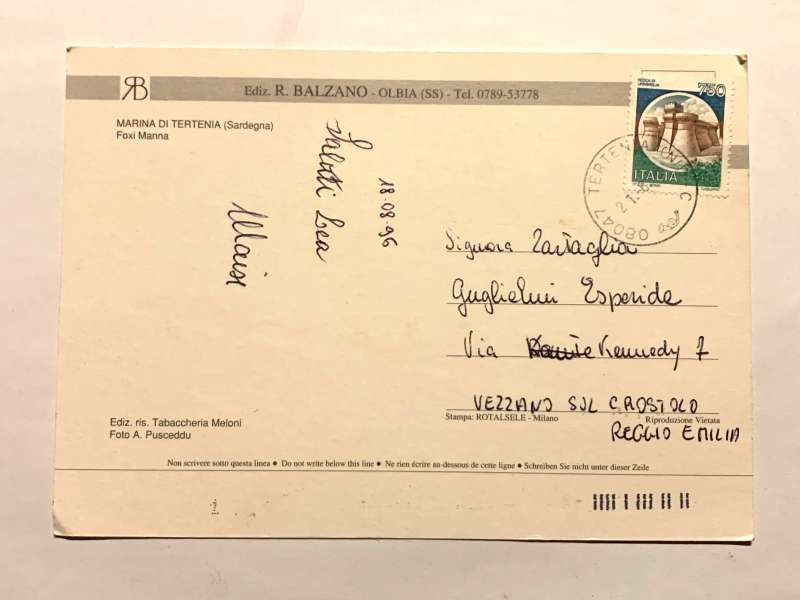 RB
Ediz. R. BALZANO - OLBIA (SS) - Tel. 0789-53778
MARINA DI TERTENIA (Sardegna)
Foxi Manna
18.08.96
Saluti Lea
750
ITALIA
08047 TERTENIA
Signora Tartaglia
Guglielmi Esperide
Via Kennedy 7
VEZZANO SUL CROSTOLO
REGGIO EMILIA
Stampa: ROTALSELE - Milano
Riproduzione Vietata
Ediz. ris. Tabaccheria Meloni
Foto A. Pusceddu
Non scrivere sotto questa linea ● Do not write below this line ● Ne rien écrire au-dessous de cette ligne ● Schreiben Sie nicht unter dieser Zeile